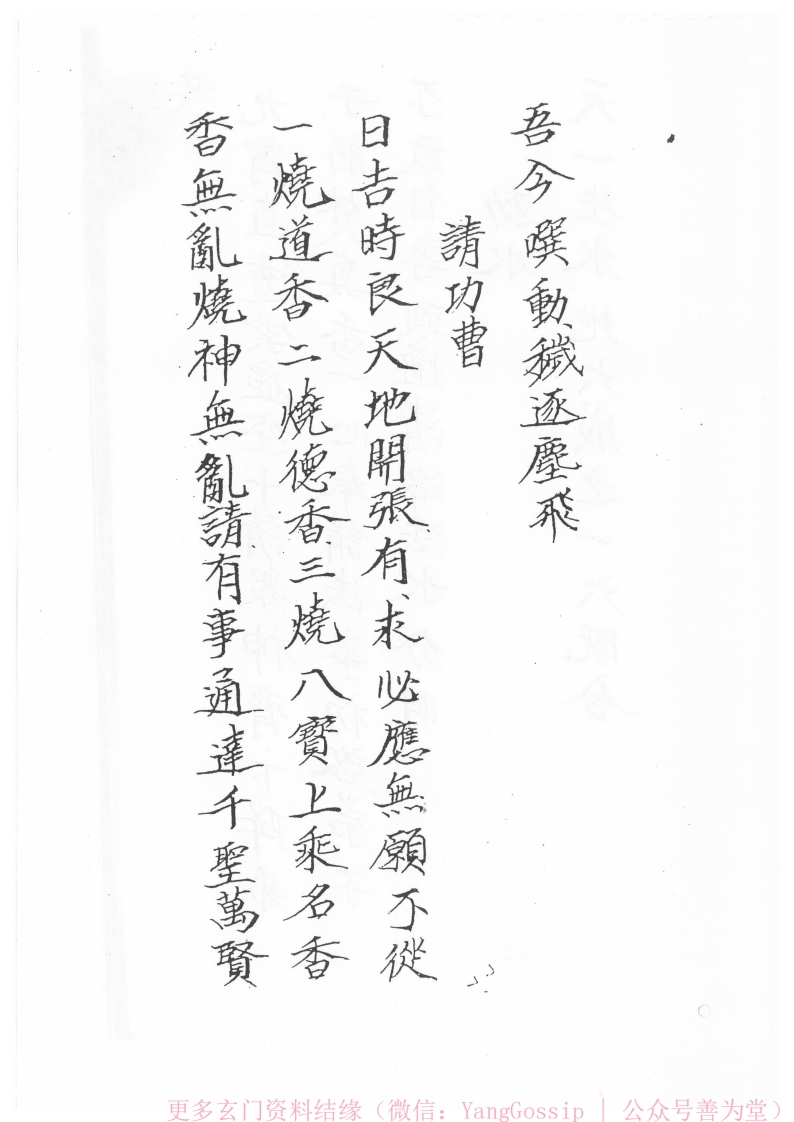 吾今噀動穢逐塵飛
請功曹
日吉時良天地開張有求必應無願不從
一燒道香二燒德香三燒八寶上乘名香
香無亂燒神無亂請有事通達千聖萬賢
更多玄门资料结缘（微信：YangGossip | 公众号善为堂）